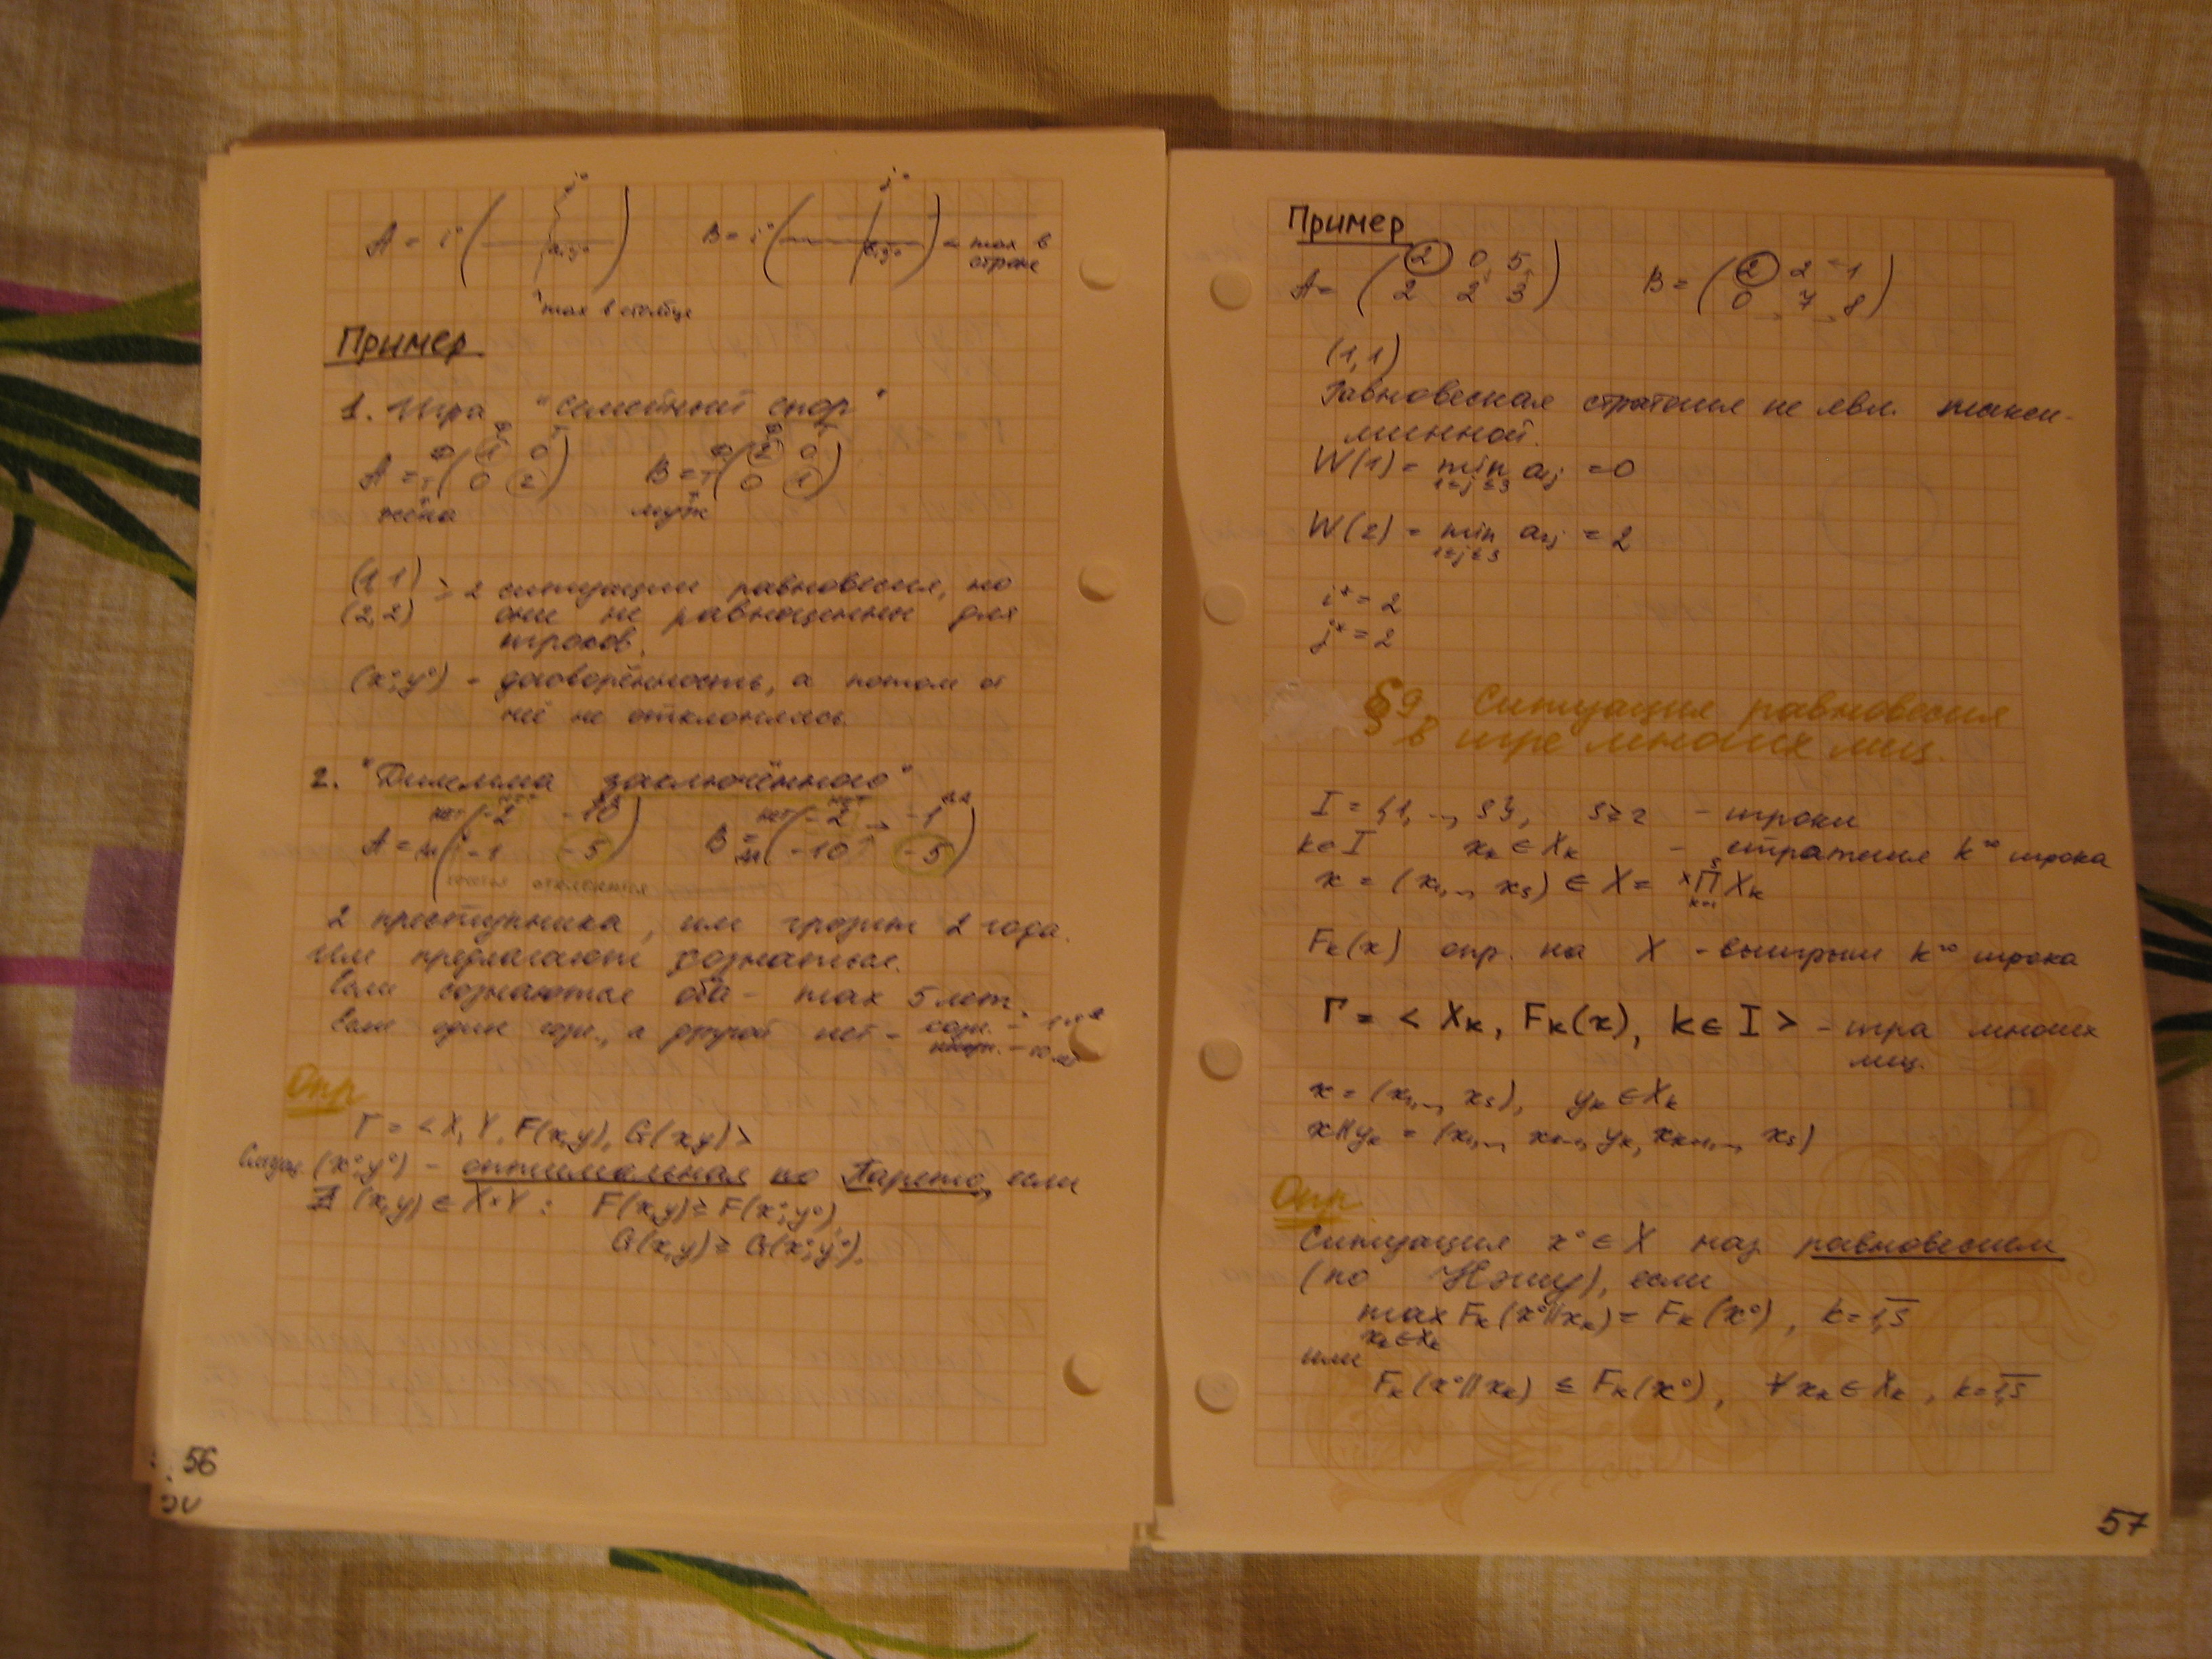 A = i° ( j° a i°j° )   B = i° ( j° a i°j° ) ← max в строке
↑ max в столбце
Пример
1. Игра "Семейный спор"
Ф Т Ф Т
A = Ф ( 1 0 )   B = Ф ( 2 0 )
Т ( 0 2 )   Т ( 0 1 )
жена   муж
(1,1) > 2 ситуации равновесия, но
(2,2) они не равноценные для
игроков.
(x°,y°) - договорённость, а потом от
неё не отклонялись.
2. "Дилемма заключённого"
нет -2 -10   нет -2 → -1
A = -1 -5   B = -10 -5
2 преступника, им грозит 2 года.
Им предлагают сознаться.
Если сознаются оба - max 5 лет.
Если один созн., а другой нет - созн. - 1
- 10 лет
Опр
Γ = < X, Y, F(x,y), G(x,y) >
Ситуац. (x°,y°) - оптимальная по Парето, если
∄ (x,y) ∈ X×Y : F(x,y) ≥ F(x°,y°)
G(x,y) ≥ G(x°,y°).
56
Пример
A = ( 2 0 5 )   B = ( 2 2 -1 )
( 2 2 3 )   ( 0 7 8 )
(1,1)
Равновесная стратегия не явл. макси-
минной.
W(1) = min a1j = 0
1≤j≤3
W(2) = min a2j = 2
1≤j≤3
i* = 2
j* = 2
§9. Ситуация равновесия
в игре многих лиц.
I = {1, ..., s}, s ≥ 2 - игроки
k ∈ I   xk ∈ Xk - стратегия kго игрока
x = (x1, ..., xs) ∈ X = ∏ Xk
Fk(x) опр. на X - выигрыш kго игрока
Γ = < Xk, Fk(x), k ∈ I > - игра многих
лиц.
x = (x1, ..., xs), yk ∈ Xk
x||yk = (x1, ..., xk-1, yk, xk+1, ..., xs)
Опр
Ситуация x° ∈ X наз равновесием
(по Нэшу), если
max Fk(x°||xk) = Fk(x°), k = 1,s
xk ∈ Xk
или
Fk(x°||xk) ≤ Fk(x°), ∀ xk ∈ Xk, k = 1,s
57